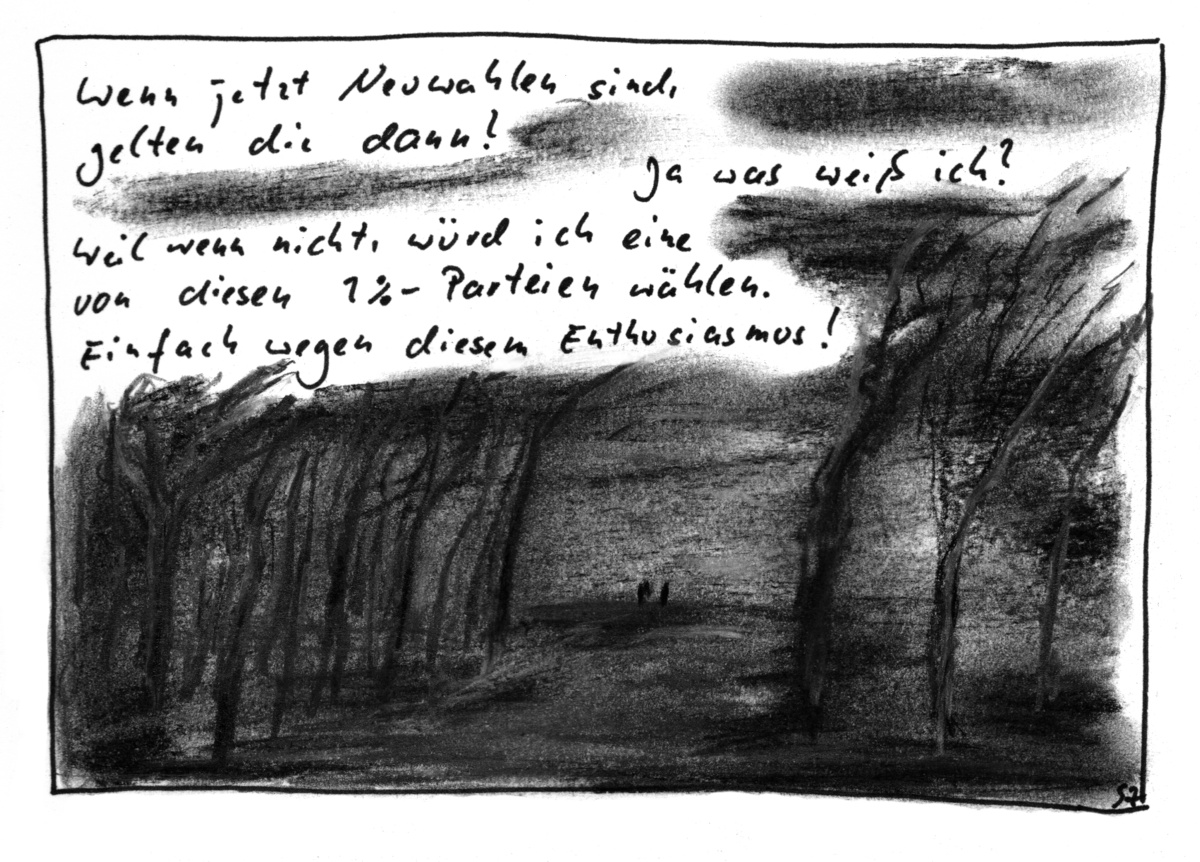 Wenn jetzt Neuwahlen sind,
gelten die dann?
Ja was weiß ich?
Weil wenn nicht, würd ich eine
von diesen 1%-Parteien wählen.
Einfach wegen diesem Enthusiasmus!